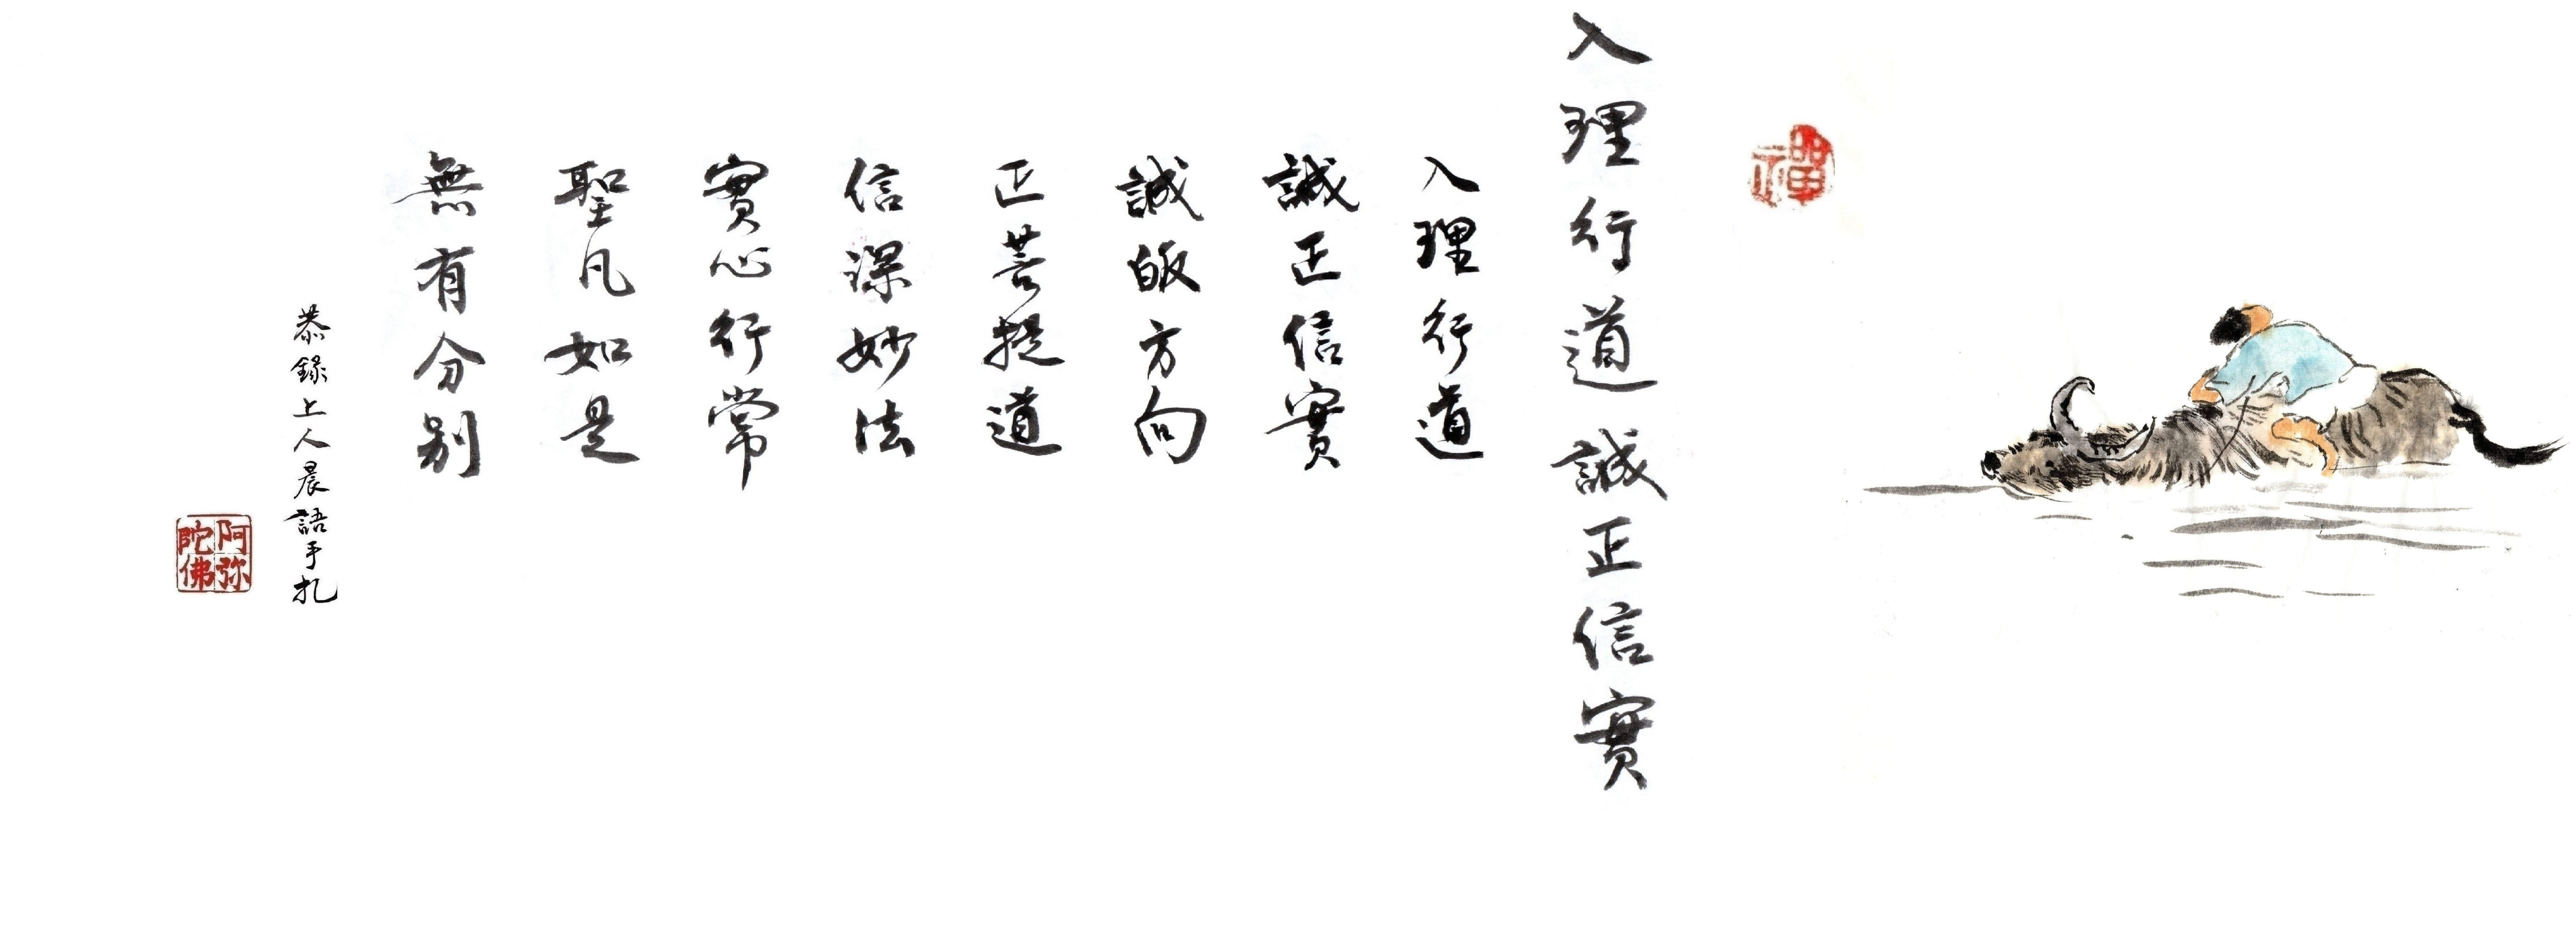 禪
入理行道誠正信實
入理行道
誠正信實
誠皈方向
正菩提道
信深妙法
實心行常
聖凡如是
無有分別
恭錄上人晨語手札
阿弥陀佛